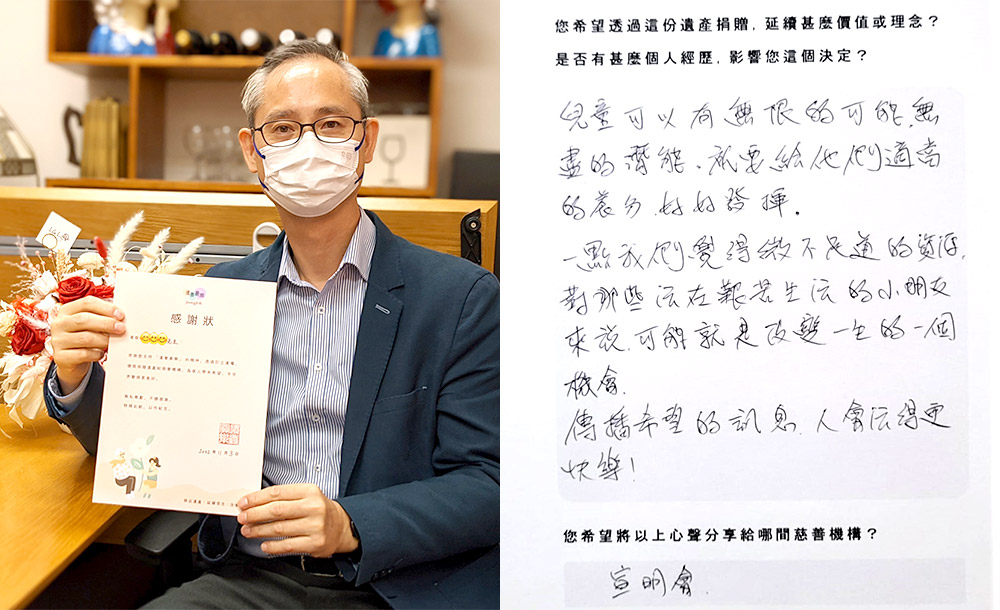 感謝狀
2022年11月3日
您希望透過這份遺產捐贈, 延續甚麼價值或理念？
是否有甚麼個人經歷, 影響您這個決定？
兒童可以有無限的可能,無
盡的潛能。祇要給他們適當
的養分,好好發揮。
一點我們覺得微不足道的資源,
對那些活在艱苦生活的小朋友
來說,可能就是改變一生的一個
機會.
傳播希望的訊息,人會活得更
快樂!
您希望將以上心聲分享給哪間慈善機構？
宣明會.